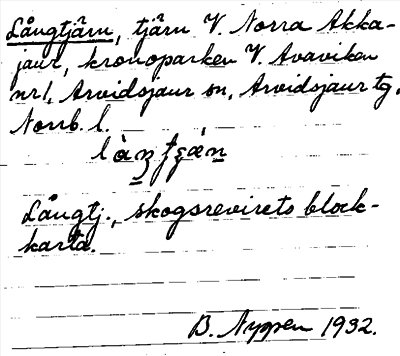 Långtjärn, tjärn V. Norra Akka-
jaur, kronoparken V. Avaviken
nr 1, Arvidsjaur sn, Arvidsjaur tg,
Norrb. l.
Långtj., skogsrevirets block-
karta.
B. Nygren 1932.